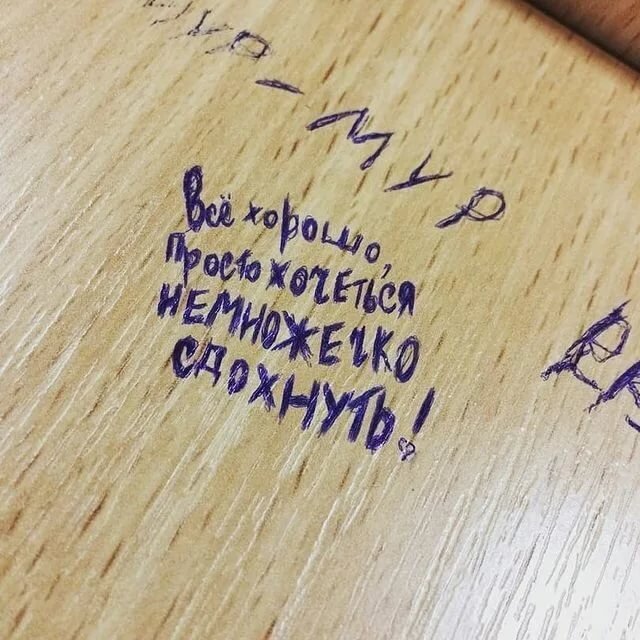 Всё хорошо,
просто хочеться
немножечко
сдохнуть!